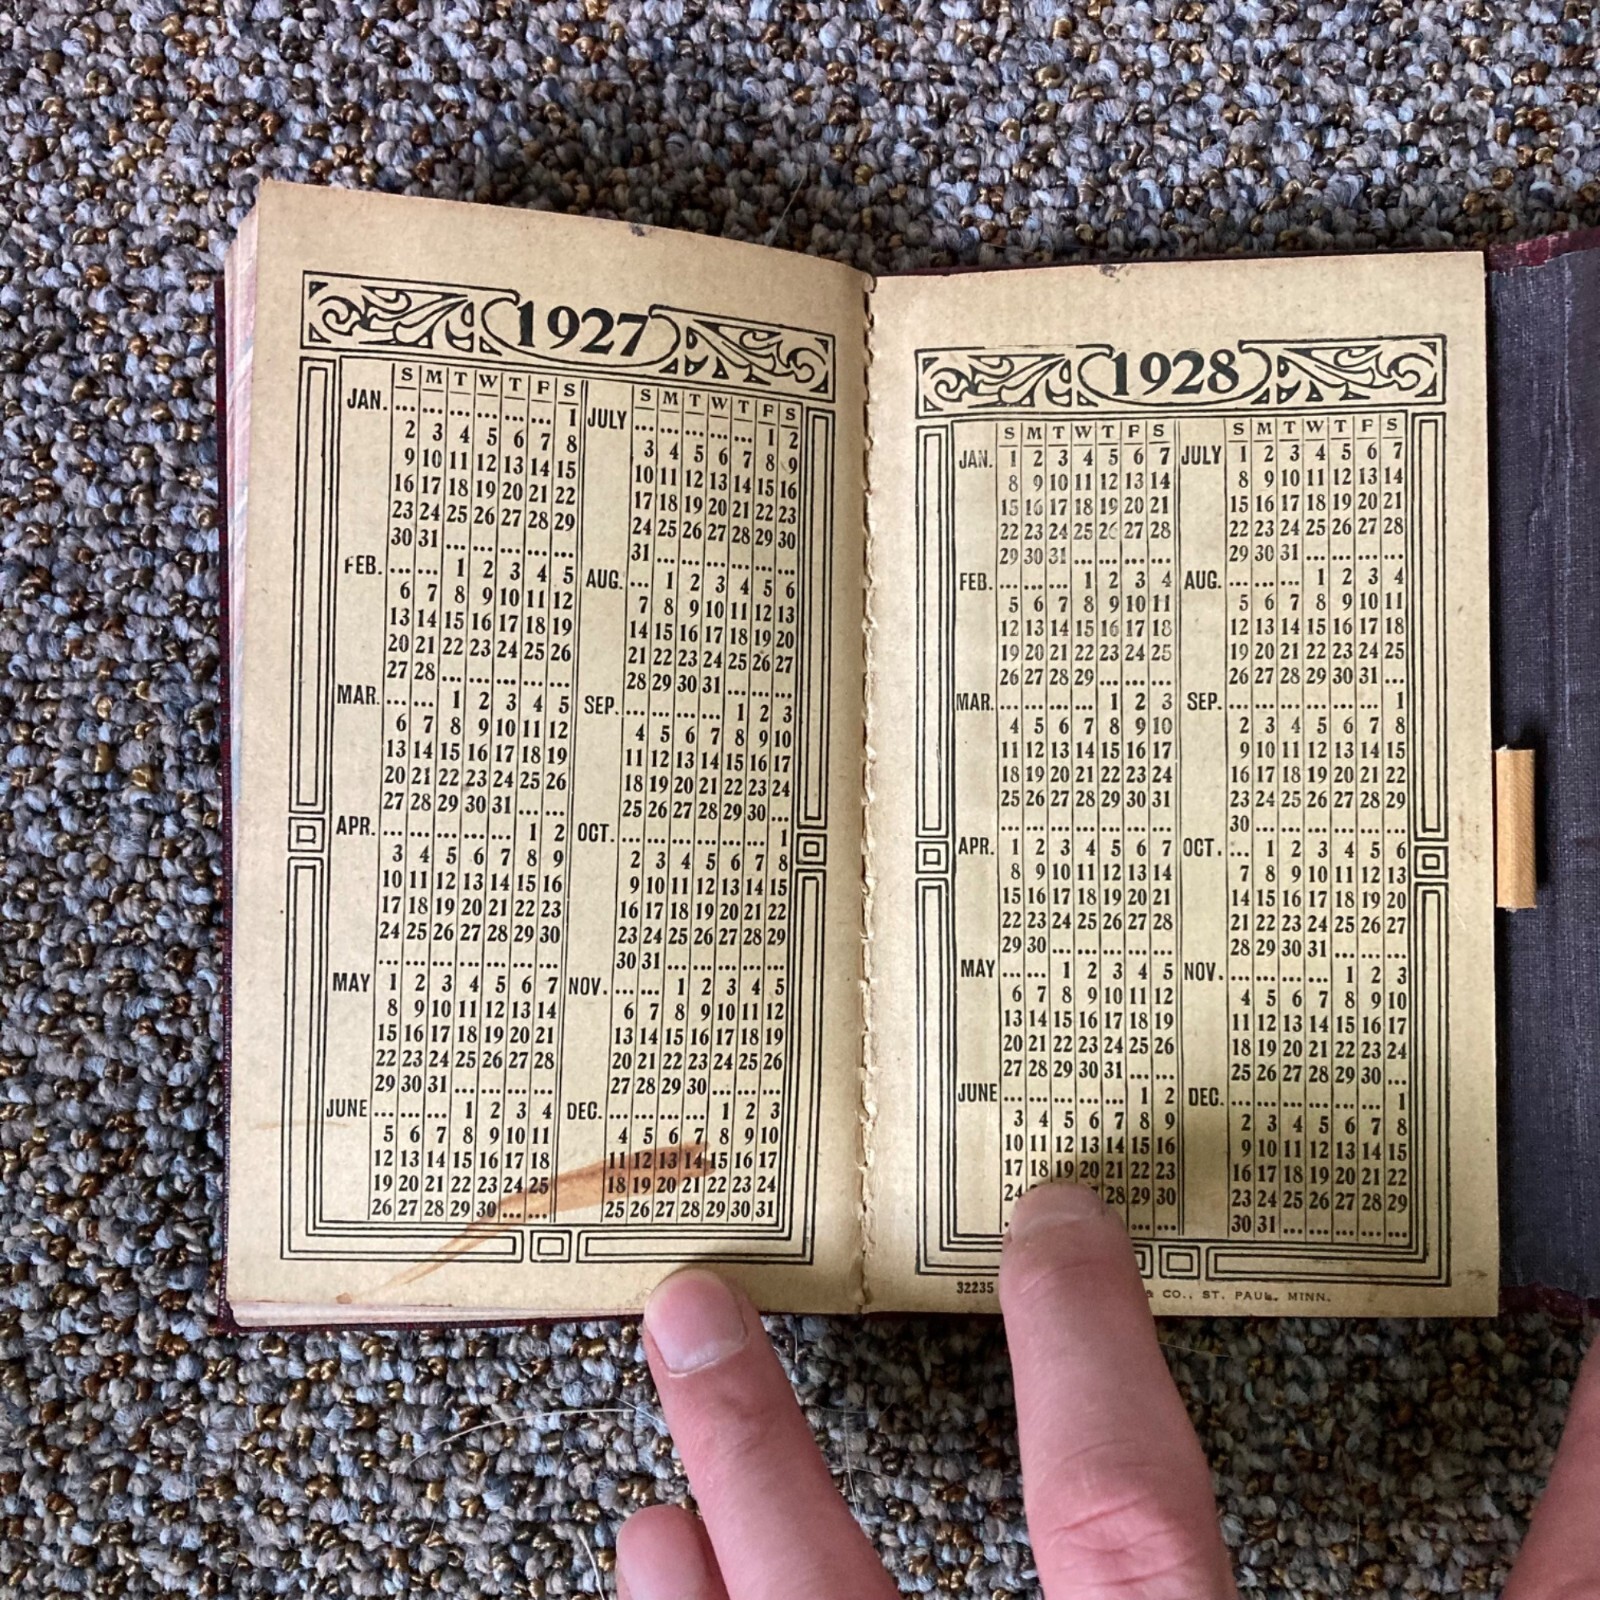 1927
S M T W T F S
JAN. ... ... ... ... ... ... 1
2 3 4 5 6 7 8
9 10 11 12 13 14 15
16 17 18 19 20 21 22
23 24 25 26 27 28 29
30 31 ... ... ... ... ...
FEB. ... ... 1 2 3 4 5
6 7 8 9 10 11 12
13 14 15 16 17 18 19
20 21 22 23 24 25 26
27 28 ... ... ... ... ...
MAR. ... ... 1 2 3 4 5
6 7 8 9 10 11 12
13 14 15 16 17 18 19
20 21 22 23 24 25 26
27 28 29 30 31 ... ...
APR. ... ... ... ... ... 1 2
3 4 5 6 7 8 9
10 11 12 13 14 15 16
17 18 19 20 21 22 23
24 25 26 27 28 29 30
... ... ... ... ... ... ...
MAY 1 2 3 4 5 6 7
8 9 10 11 12 13 14
15 16 17 18 19 20 21
22 23 24 25 26 27 28
29 30 31 ... ... ... ...
JUNE ... ... ... 1 2 3 4
5 6 7 8 9 10 11
12 13 14 15 16 17 18
19 20 21 22 23 24 25
26 27 28 29 30 ... ...
S M T W T F S
JULY ... ... ... ... ... 1 2
3 4 5 6 7 8 9
10 11 12 13 14 15 16
17 18 19 20 21 22 23
24 25 26 27 28 29 30
31 ... ... ... ... ... ...
AUG. ... 1 2 3 4 5 6
7 8 9 10 11 12 13
14 15 16 17 18 19 20
21 22 23 24 25 26 27
28 29 30 31 ... ... ...
SEP. ... ... ... ... 1 2 3
4 5 6 7 8 9 10
11 12 13 14 15 16 17
18 19 20 21 22 23 24
25 26 27 28 29 30 ...
OCT. ... ... ... ... ... ... 1
2 3 4 5 6 7 8
9 10 11 12 13 14 15
16 17 18 19 20 21 22
23 24 25 26 27 28 29
30 31 ... ... ... ... ...
NOV. ... ... 1 2 3 4 5
6 7 8 9 10 11 12
13 14 15 16 17 18 19
20 21 22 23 24 25 26
27 28 29 30 ... ... ...
DEC. ... ... ... ... 1 2 3
4 5 6 7 8 9 10
11 12 13 14 15 16 17
18 19 20 21 22 23 24
25 26 27 28 29 30 31
1928
S M T W T F S
JAN. 1 2 3 4 5 6 7
8 9 10 11 12 13 14
15 16 17 18 19 20 21
22 23 24 25 26 27 28
29 30 31 ... ... ... ...
FEB. ... ... ... 1 2 3 4
5 6 7 8 9 10 11
12 13 14 15 16 17 18
19 20 21 22 23 24 25
26 27 28 29 ... ... ...
MAR. ... ... ... ... 1 2 3
4 5 6 7 8 9 10
11 12 13 14 15 16 17
18 19 20 21 22 23 24
25 26 27 28 29 30 31
... ... ... ... ... ... ...
APR. 1 2 3 4 5 6 7
8 9 10 11 12 13 14
15 16 17 18 19 20 21
22 23 24 25 26 27 28
29 30 ... ... ... ... ...
MAY ... ... 1 2 3 4 5
6 7 8 9 10 11 12
13 14 15 16 17 18 19
20 21 22 23 24 25 26
27 28 29 30 31 ... ...
JUNE ... ... ... ... ... 1 2
3 4 5 6 7 8 9
10 11 12 13 14 15 16
17 18 19 20 21 22 23
24 28 29 30
... ... ...
S M T W T F S
JULY 1 2 3 4 5 6 7
8 9 10 11 12 13 14
15 16 17 18 19 20 21
22 23 24 25 26 27 28
29 30 31 ... ... ... ...
AUG. ... ... ... 1 2 3 4
5 6 7 8 9 10 11
12 13 14 15 16 17 18
19 20 21 22 23 24 25
26 27 28 29 30 31 ...
SEP. ... ... ... ... ... ... 1
2 3 4 5 6 7 8
9 10 11 12 13 14 15
16 17 18 19 20 21 22
23 24 25 26 27 28 29
30 ... ... ... ... ... ...
OCT. ... 1 2 3 4 5 6
7 8 9 10 11 12 13
14 15 16 17 18 19 20
21 22 23 24 25 26 27
28 29 30 31 ... ... ...
NOV. ... ... ... ... 1 2 3
4 5 6 7 8 9 10
11 12 13 14 15 16 17
18 19 20 21 22 23 24
25 26 27 28 29 30 ...
DEC. ... ... ... ... ... ... 1
2 3 4 5 6 7 8
9 10 11 12 13 14 15
16 17 18 19 20 21 22
23 24 25 26 27 28 29
30 31 ... ... ... ... ...
32235 & CO., ST. PAUL, MINN.